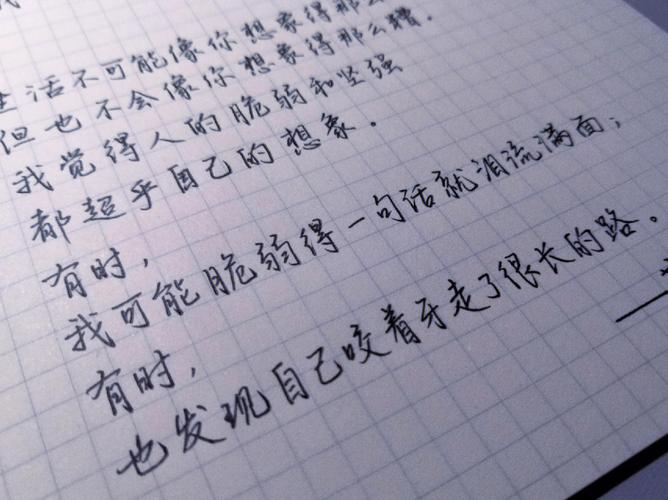 生活不可能像你想象得那么
但也不会像你想象得那么糟.
我觉得人的脆弱和坚强
都超乎自己的想象.
有时,
我可能脆弱得一句话就泪流满面;
有时,
也发现自己咬着牙走了很长的路。
——